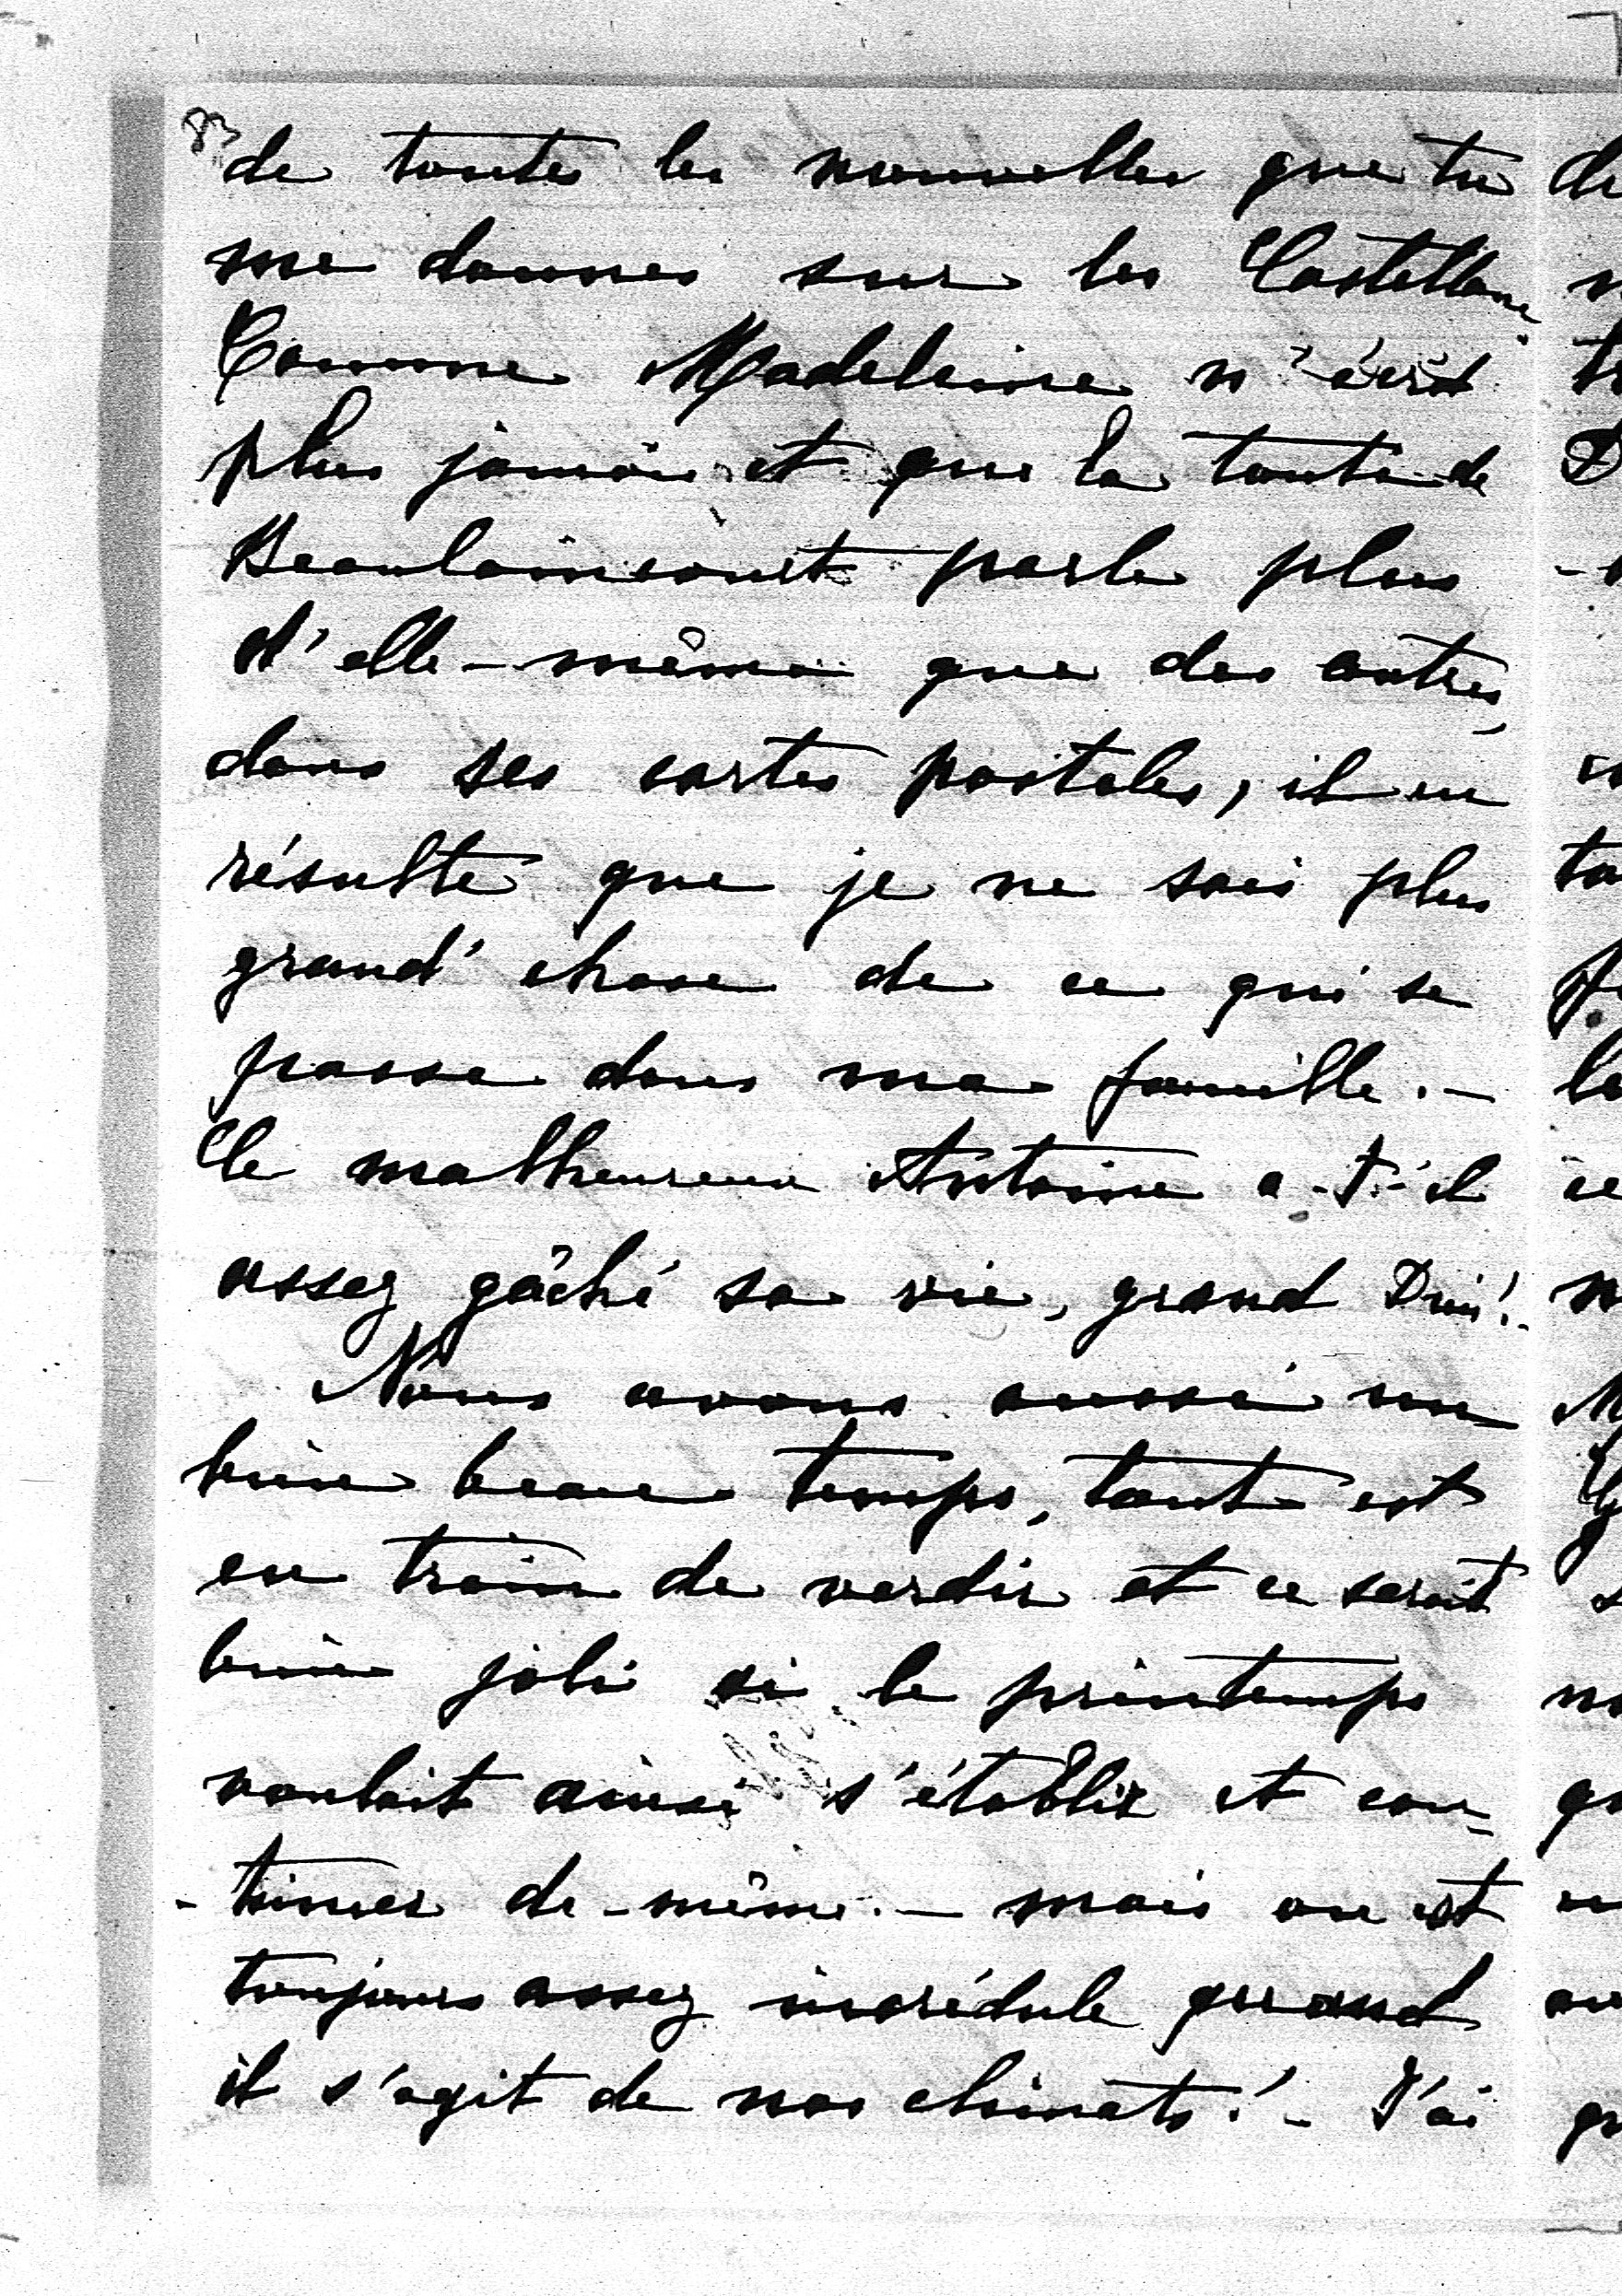 83
de toutes les nouvelles que tu
me donnes sur les Castellane.
Comme Madeleine n'écrit
plus jamais et que la tante de
Beaulaincourt parle plus
d'elle-même que des autres,
dans ses cartes postales, il en
résulte que je ne sais plus
grand'chose de ce qui se
passe dans ma famille. —
Ce malheureux Antoine a-t-il
assez gâché sa vie, grand Dieu! -
Nous avons aussi un
bien beau temps, tout est
en train de verdir et ce serait
bien joli si le printemps
voulait ainsi s'établir et con-
-tinuer de-même. — mais on est
toujours assez incrédule quand
il s'agit de nos climats! - J'ai